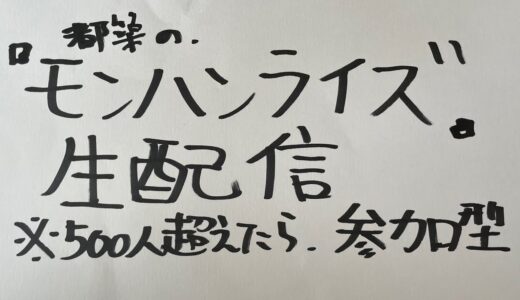 都築の.
『モンハンライズ』
生配信
※500人超えたら.参加型